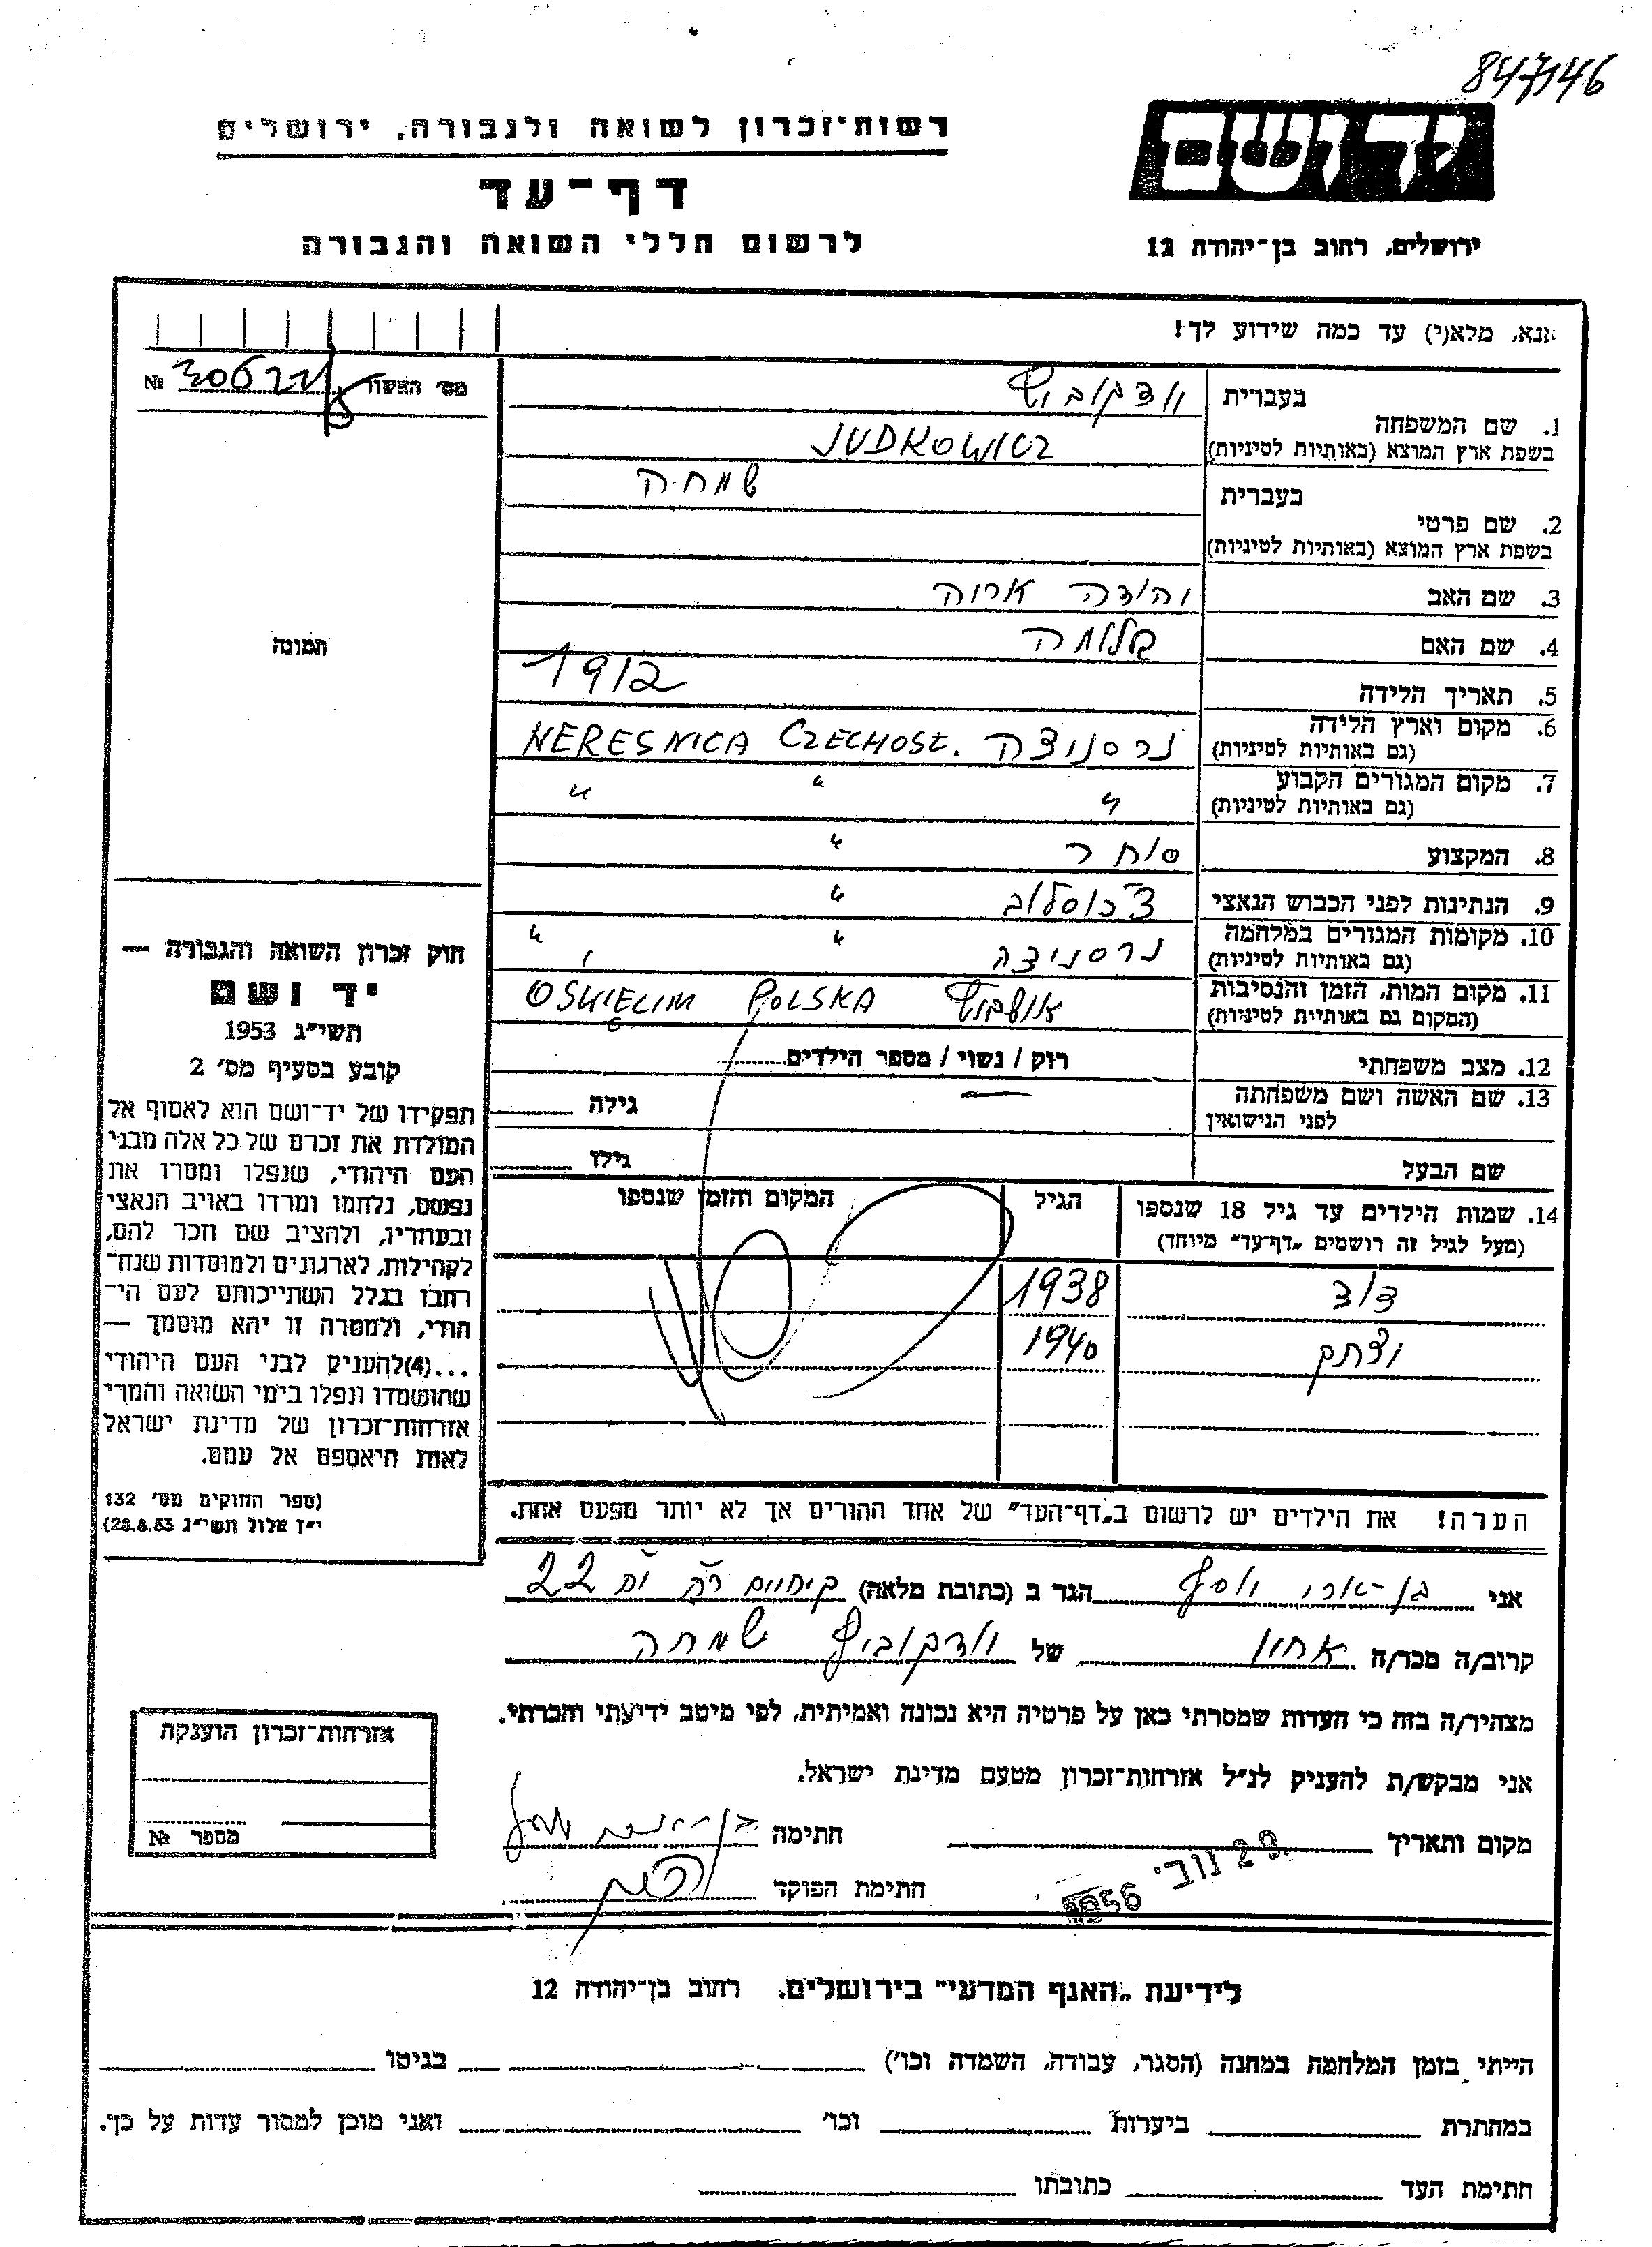 847146
רשות־זכרון לשואה ולגבורה, ירושלים
דף־עד
לרשום חללי השואה והגבורה
יד ושם
ירושלים, רחוב בן־יהודה 12
אנא, מלא(י) עד כמה שידוע לך!
מס' האשור № 306221
1. שם המשפחה בעברית יודקוביץ
בשפת ארץ המוצא (באותיות לטיניות) JUDKOWICZ
2. שם פרטי בעברית שמחה
בשפת ארץ המוצא (באותיות לטיניות)
3. שם האב יהודה אריה
4. שם האם בלומה
5. תאריך הלידה 1912
6. מקום וארץ הלידה (גם באותיות לטיניות) נרסניצה NERESNICA CZECHOSL.
7. מקום המגורים הקבוע (גם באותיות לטיניות) " " "
8. המקצוע סוחר "
9. הנתינות לפני הכבוש הנאצי צ'כוסלוב "
10. מקומות המגורים במלחמה (גם באותיות לטיניות) נרסניצה " "
11. מקום המות, הזמן והנסיבות (המקום גם באותיות לטיניות) אושביץ OŚWIĘCIM POLSKA
12. מצב משפחתי רוק / נשוי / מספר הילדים
13. שם האשה ושם משפחתה לפני הנישואין — גילה
שם הבעל גילו
14. שמות הילדים עד גיל 18 שנספו
(מעל לגיל זה רושמים „דף־עד" מיוחד)
הגיל
המקום והזמן שנספו
דוד 1938
יצחק 1940
הערה! את הילדים יש לרשום ב„דף־העד" של אחד ההורים אך לא יותר מפעם אחת.
תמונה
חוק זכרון השואה והגבורה —
יד ושם
תשי"ג 1953
קובע בסעיף מס' 2
תפקידו של יד־ושם הוא לאסוף אל
המולדת את זכרם של כל אלה מבני
העם היהודי, שנפלו ומסרו את
נפשם, נלחמו ומרדו באויב הנאצי
ובעוזריו, ולהציב שם וזכר להם,
לקהילות, לארגונים ולמוסדות שנח־
רבו בגלל השתייכותם לעם הי־
הודי, ולמטרה זו יהא מוסמך —
...(4) להעניק לבני העם היהודי
שהושמדו ונפלו בימי השואה והמרי
אזרחות־זכרון של מדינת ישראל
לאות היאספם אל עמם.
(ספר החוקים מס' 132
י"ז אלול תשי"ג 28.8.53)
אני בן־ארי יוסף הגר ב (כתובת מלאה) 22
קרוב/ה מכר/ה אחיו של יודקוביץ שמחה
מצהיר/ה בזה כי העדות שמסרתי כאן על פרטיה היא נכונה ואמיתית, לפי מיטב ידיעתי והכרתי.
אני מבקש/ת להעניק לנ"ל אזרחות־זכרון מטעם מדינת ישראל.
מקום ותאריך 29 נוב' 1956 חתימה
חתימת הפוקד
אזרחות־זכרון הוענקה
מספר №
לידיעת „האגף המדעי" בירושלים. רחוב בן־יהודה 12
הייתי בזמן המלחמה במחנה (הסגר, עבודה, השמדה וכו') בגיטו
במחתרת ביערות וכו' ואני מוכן למסור עדות על כך.
חתימת העד כתובתו